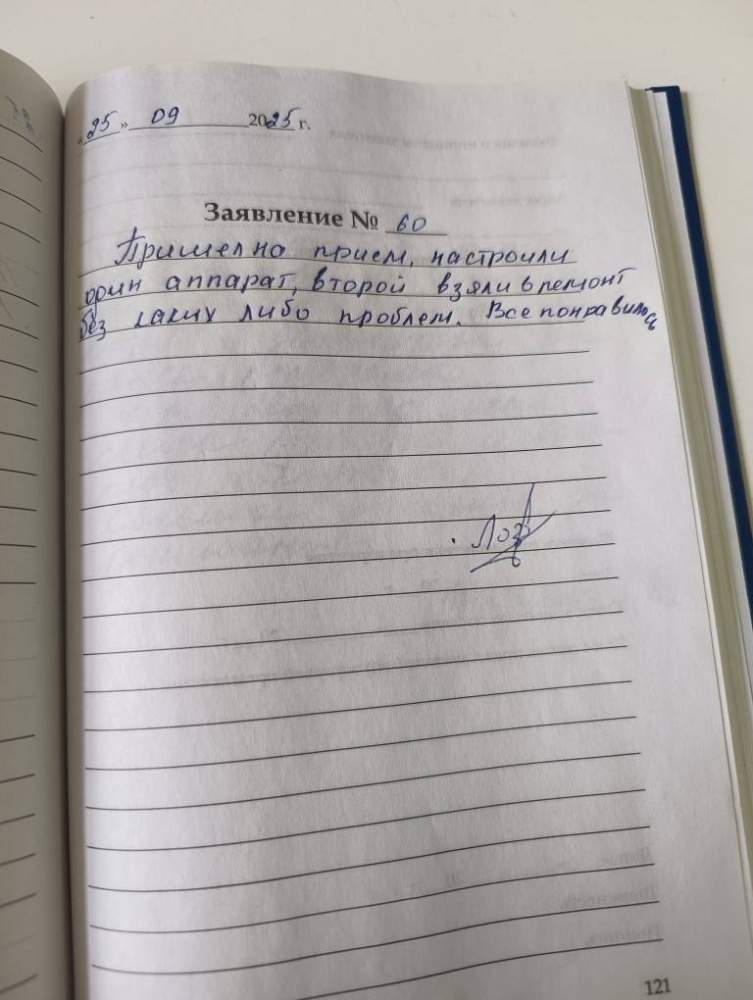 «25» 09 2025 г.
Заявление № 60
Пришел на прием, настроили
один аппарат, второй взяли в ремонт
без каких либо проблем. Все понравилось
121